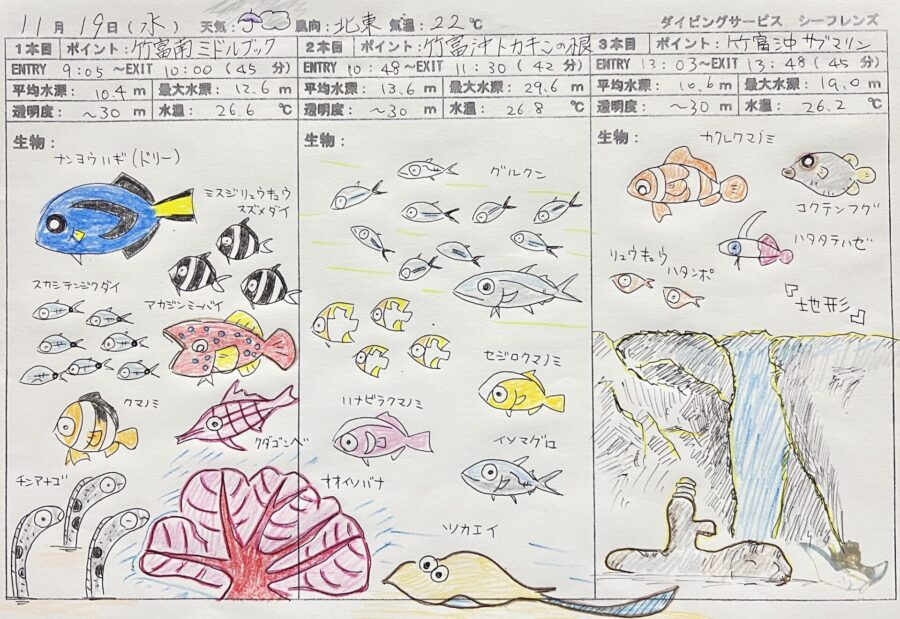 11月 19日(水) 天気: 風向: 北東 気温: 22℃ ダイビングサービス シーフレンズ
1本目 ポイント: 竹富南ミドルブック
ENTRY 9:05 ～EXIT 10:00 (45 分)
平均水深: 10.4 m 最大水深: 12.6 m
透明度: ～30 m 水温: 26.6 ℃
生物:
ナンヨウハギ(ドリー)
ミスジリュウキュウ
スズメダイ
スカシテンジクダイ
アカジンミーバイ
クマノミ
クダゴンベ
チンアナゴ
オオイソバナ
2本目 ポイント: 竹富沖トカキンの根
ENTRY 10:48 ～EXIT 11:30 (42 分)
平均水深: 13.6 m 最大水深: 29.6 m
透明度: ～30 m 水温: 26.8 ℃
生物:
グルクン
セジロクマノミ
ハナビラクマノミ
イソマグロ
ツカエイ
3本目 ポイント: 竹富沖サブマリン
ENTRY 13:03 ～EXIT 13:48 (45 分)
平均水深: 10.6 m 最大水深: 19.0 m
透明度: ～30 m 水温: 26.2 ℃
生物:
カクレクマノミ
コクテンフグ
ハタタテハゼ
リュウキュウ
ハタンポ
『地形』